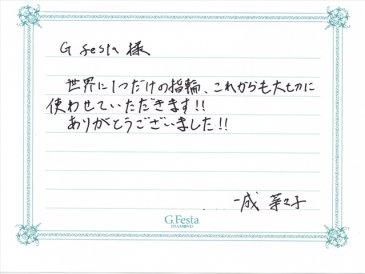 G festa 様
世界に1つだけの指輪、これからも大切に
使わせていただきます!!
ありがとうございました!!
一成 菜々子
G.Festa
DIAMOND